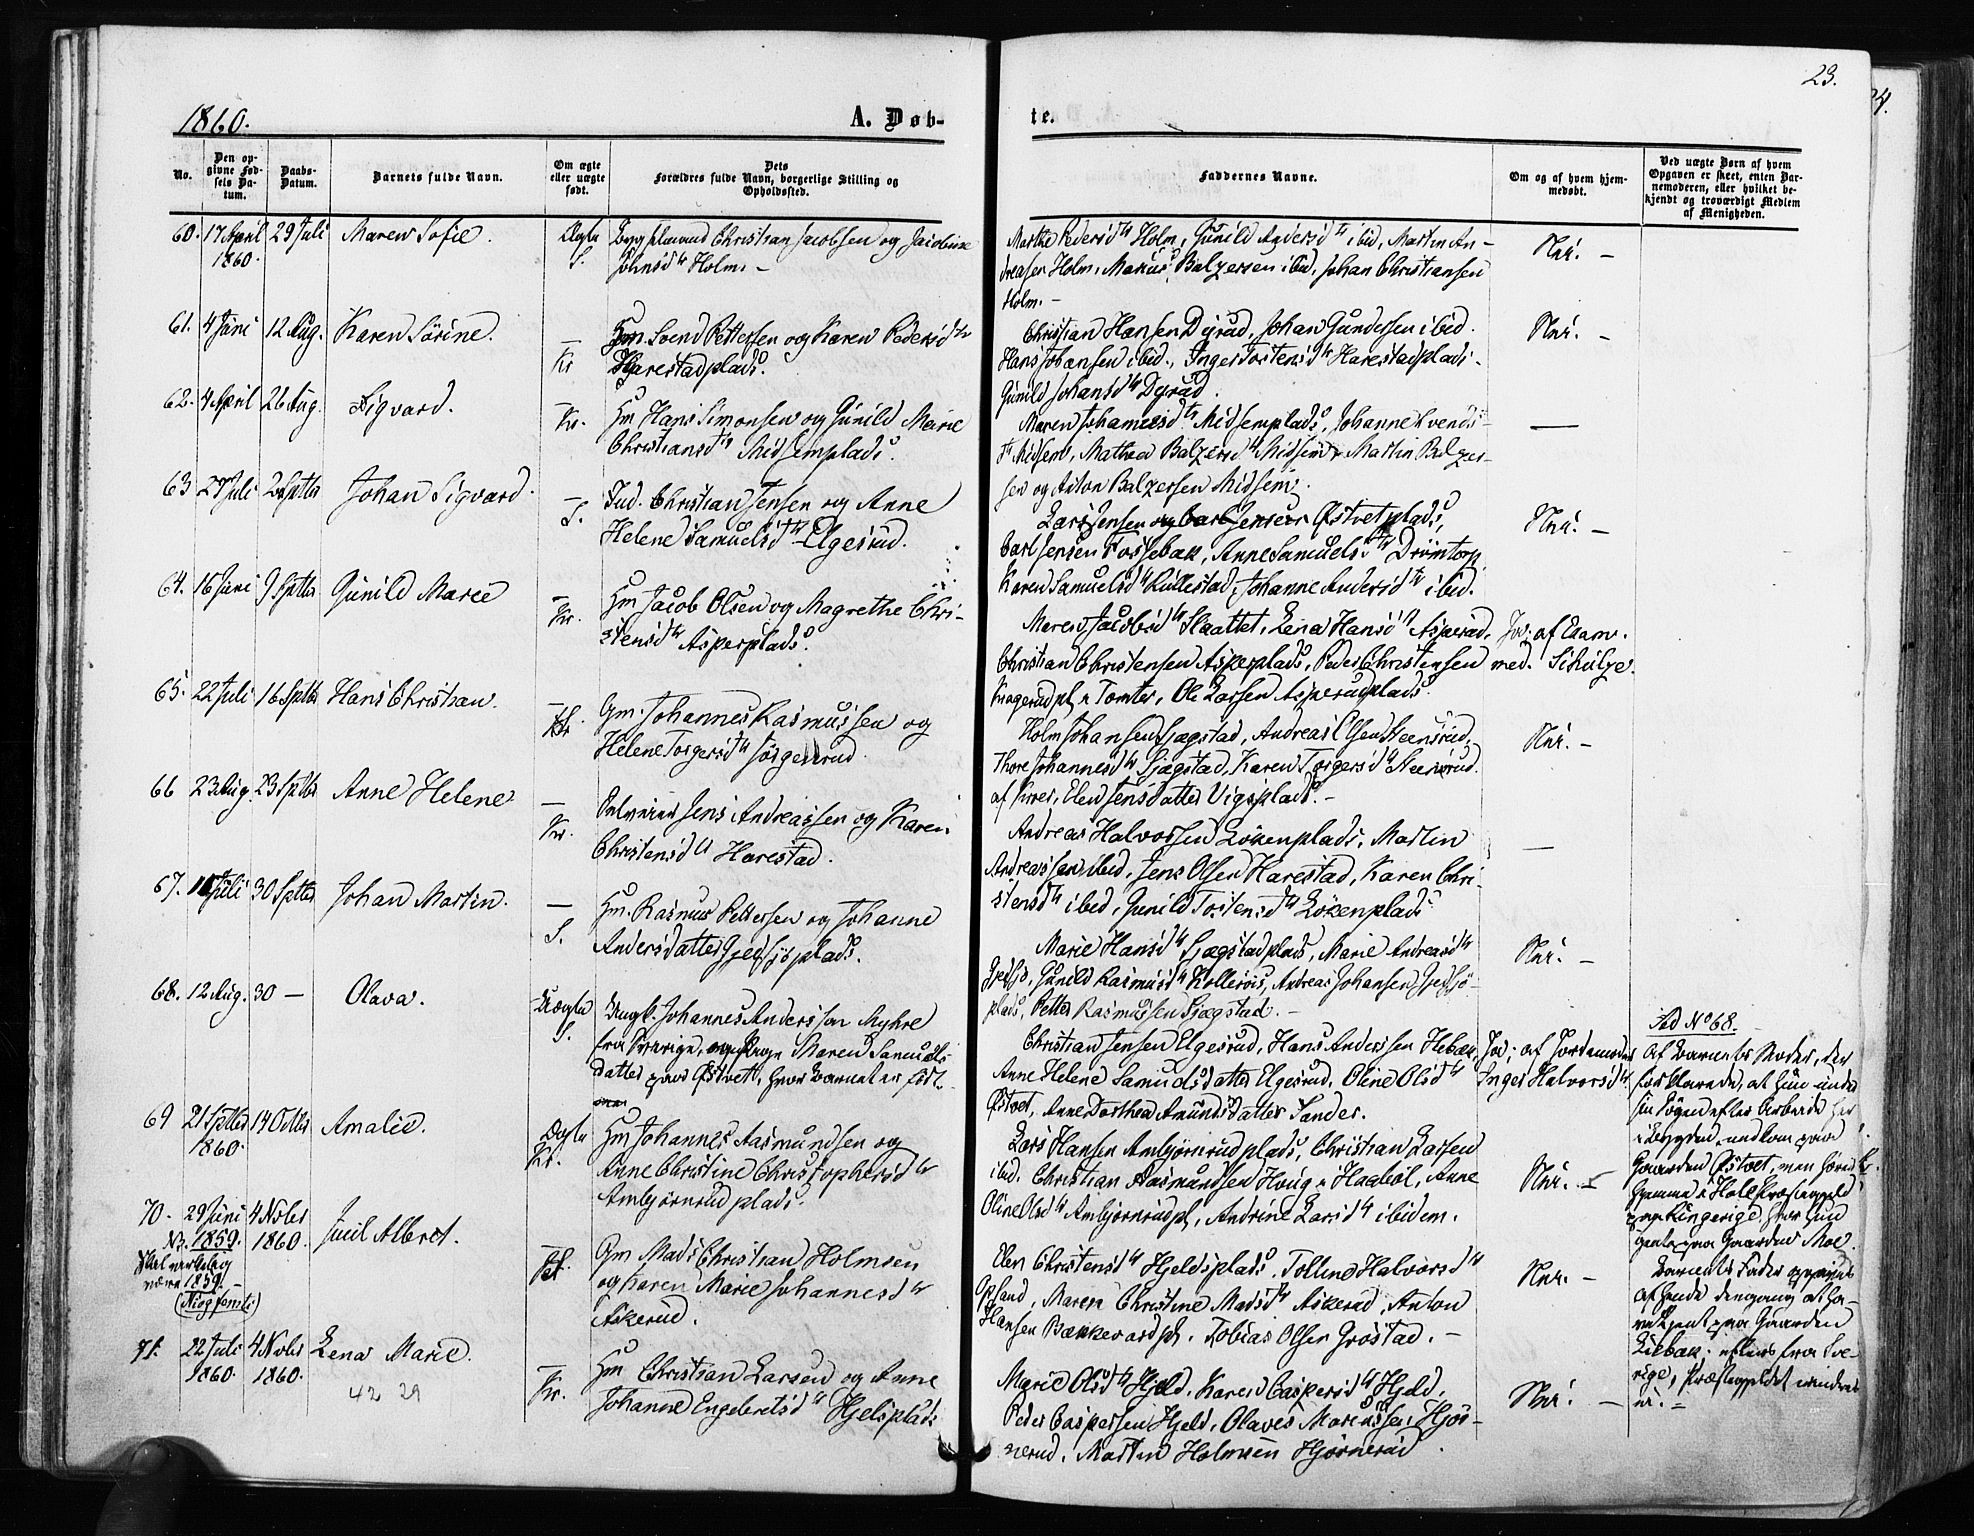 23.
1860.
A. Døb-
te.
No.
Den op-
givne Fød-
sels Da-
tum.
Daabs-
Datum.
Barnets fulde Navn.
Om ægte
eller uægte
født.
Dets
Forældres fulde Navn, borgerlige Stilling og
Opholdssted.
Faddernes Navne.
Om og af hvem hjem-
medøbt.
Ved uægte Børn af hvem
Opgaven er skeet, enten Bar-
nemoderen, eller hvilket be-
kjendt og troværdigt Medlem
af Menigheden.
60. 17 April 1860. 29 Juli Maren Sofie. Ægte S.
Christian Jacobsen og Jacobine
Johnsdtr Holm. –
Marthe Pedersdtr Holm, Gunild Andersdtr ibid, Martin An-
dreasen Holm, Balzersen ibid, Johan Christiansen
Holm. –
Nei. –
61. 4 Juni 12 Aug. Karen Sørine. – Kr
Svend Pettersen og Karen Pedersdtr
Harestadplads.
Christian Hansen Dyrud, Johan Gundersen ibid.
Hans Johansen ibid., Inger Tostensdtr Harestadplads.
Gunild Johansdtr Dyrud.
Nei. –
62. 4 April 26 Aug. Sigvard. Kr.
Hm Hans Simonsen og Gunild Marie
Christiansdtr Midsemplads.
Maren Midsemplads, Johanne Svends-
tr Midsem, Mathea Balzersdtr Midsem, Martin Balzer-
sen og Anton Balzersen Midsem.
—
63 27 Juli 2 Sptbr Johan Sigvard. – S.
Ind. Christian Jensen og Anne
Helene Samuelsdtr Elgesrud.
Lars Jensen Østvetplads,
Carl Jensen Fossebæk, Anne Samuelsdtr Drömtorp,
Karen Samuelsdtr Rullestad, Johanne Andersdtr ibid.
Nei. –
64. 16 Juni 9 Sptbr Gunild Marie – Kr.
Hm Jacob Olsen og Magrethe Chri-
stensdtr Asperplads.
Maren Jacobsdtr Slaattet, Lena Hansdtr Asperud,
Christian Christensen Askerplads, Peder Christensen
Kragerudpl i Tomter, Ole Larsen Asperudplads.
Jo; af Exam.
med. Schulze.
65. 22 Juli 16 Sptbr Hans Christian. –
Gm. Johannes Rasmussen og
Helene Torgersdtr
Holm Johansen Sjægstad, Andreas Olsen Steensrud,
Thore Johannesdtr Sjægstad, Karen Torgersdtr Steensrud.
Elen Jensdatter Vigsplads. –
Nei. –
66 23 Aug. 23 Sptbr Anne Helene – Kr.
Jens Andreassen og Karen
Christensdtr Harestad.
Andreas Halvorsen Løkenplads, Martin
Andreassen ibid, Jens Olsen Harestad, Karen Chri-
stensdtr ibid, Gunild Tostensdtr Løkenplads
—
67. Juli 30 Sptbr Johan Martin. – S.
Hm. Rasmus Pettersen og Johanne
Andersdatter Gjedsjøplads.
Marie Hansdtr Sjægstadplads, Marie Andreasdtr
Gjedsjø, Gunild Rasmusdtr Kolleraas, Andreas Johansen Gjedsjø-
plads, Petter Rasmussen Sjægstad. –
Nei. –
68. 12 Aug. 30 — Olava. Uægte S.
Ungk. Johannes Andersson Myhre
fra Sverige, og Pige Maren Samuels-
datter paa Østvet, hvor Barnet er født.
Christian Jensen Elgesrud, Hans Andersen Hebæk,
Anne Helene Samuelsdatter Elgesrud, Oline Olsdtr
Østvet, Anne Dorthea Amundsdatter Sander.
Jo; af Jordemoder
Inger Halvorsdtr.
Ad No 68.
Af Barnets Moder, der
forklarede, at hun under
sin Søgen efter Arbeide her
i Bygden, nedkom paa
Gaarden Østvet, men hører
hjemme i Hole Præstegjeld
paa Ringerige, hvor hun
tjente paa Gaarden Moe.
Barnets Fader
af hende dengang at ha-
ve tjent paa Gaarden
fra Sve-
rige,
69 21 Sptbr 1860. 14 Octbr Amalie. Ægte Kr.
Hm Johannes Aasmundsen og
Anne Christine Christophersdtr
Ambjørnrudplads.
Lars Hansen Ambjørnrudplads, Christian Larsen
ibid. Christian Aasmundsen Haug i Haabøl, Anne
Oline Olsdtr Ambjørnrudpl, Andrine Larsdtr ibidem.
Nei. –
70. 29 Juni 1859. 4 Novbr 1860. Juul Albret. –
NB.
Skal virkelig
være 1859. –
(Niogfemti)
Gm Mads Christian Holmsen
og Karen Marie Johannesdtr
Askerud.
Elen Christensdtr Hjeldsplads. Tolline Halvorsdtr
Opsand, Maren Christine Madsdtr Askerud, Anton
Hansen Bækkevardpl. Tobias Olsen Grøstad. –
Nei. –
71. 22 Juli 1860. 4 Novbr 1860. Lena Marie. – Kr.
42 29
Hm Christian Larsen og Anne
Johanne Engebretsdtr Hjelsplads
Marie Olsdtr Hjeld, Karen Caspersdtr Hjeld,
Peder Caspersen Hjeld, Olaves Mariussen Hjør-
nerud, Martin Holmsen Hjørnerud.
Nei. –